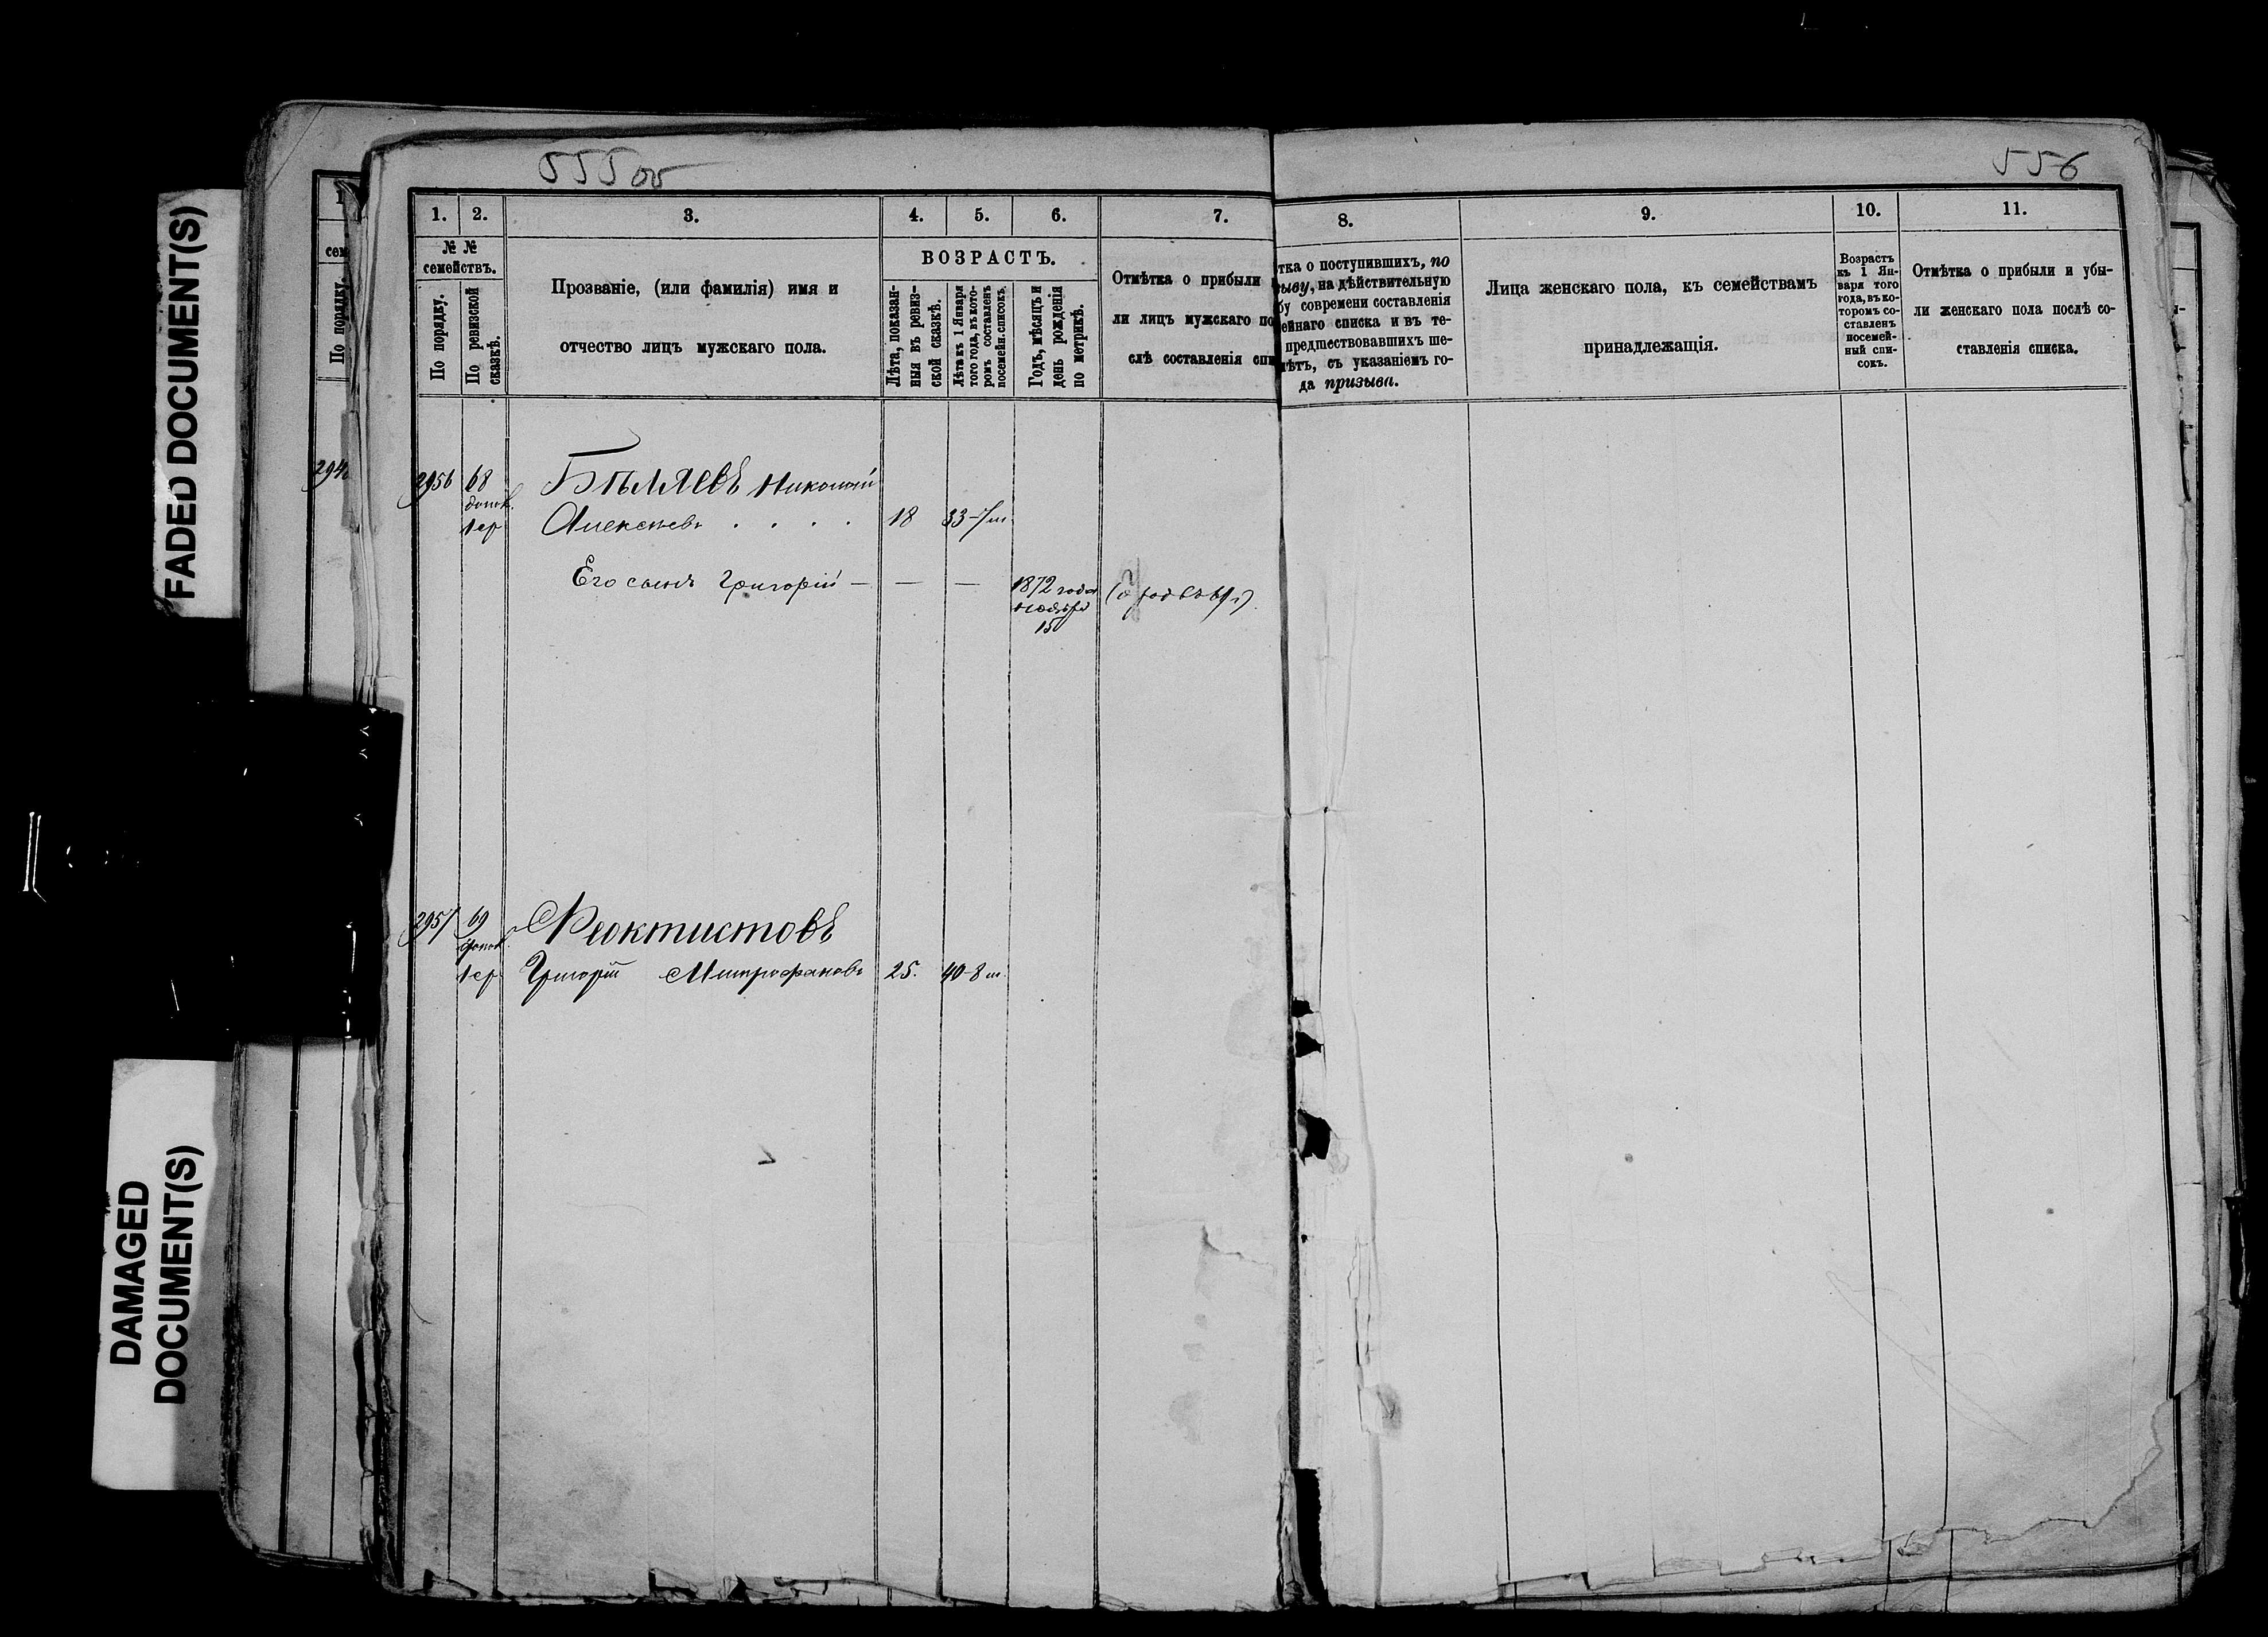 FADED DOCUMENT(S)
DAMAGED
DOCUMENT(S)
555 об
556
1.
2.
3.
4.
5.
6.
7.
8.
9.
10.
11.
№ №
семействъ.
По порядку.
По ревизской
сказкѣ.
Прозваніе, (или фамилія) имя и
отчество лицъ мужскаго пола.
ВОЗРАСТЪ.
Лѣта, показан-
ныя въ ревиз-
ской сказкѣ.
Лѣта къ 1 Января
того года, въ кото-
ромъ составленъ
посемейн. списокъ.
Годъ, мѣсяцъ и
день рожденія
по метрикѣ.
Отмѣтка о прибыли
ли лицъ мужскаго по
слѣ составленія спи
тка о поступившихъ, по
зыву, на дѣйствительную
бу современи составленія
ейнаго списка и въ те-
предшествовавшихъ ше-
лѣтъ, съ указаніемъ го-
да призыва.
Лица женскаго пола, къ семействамъ
принадлежащія.
Возрастъ
къ 1 Ян-
варя того
года, въ ко-
торомъ со-
ставленъ
посемей-
ный спи-
сокъ.
Отмѣтка о прибыли и убы-
ли женскаго пола послѣ со-
ставленія списка.
сем
По порядку.
294
2956 68 Бѣляевъ Николай
допол.
1 ср Алексѣевъ . . . . 18 33-7 м.
Его сынъ Григорій — — — 1872 года
ноября
15
2957 69 Феоктистовъ
допол.
1 ср Григорій Митрофановъ 25. 40-8 м.